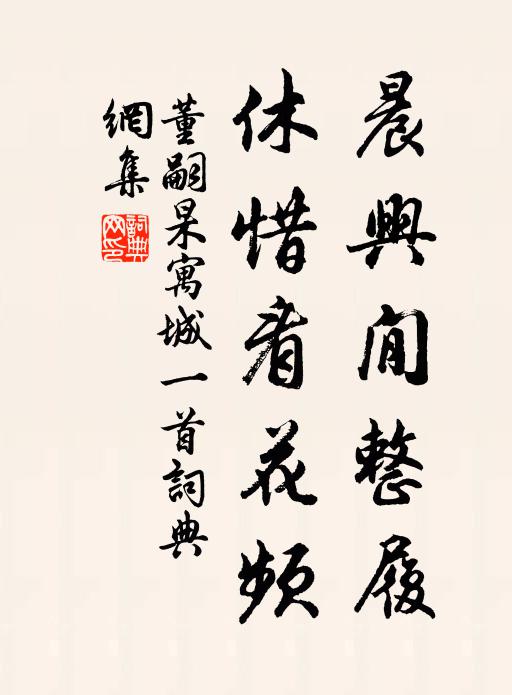 晨興閒整履
休惜看花頻
董嗣杲寓城一首詞典
網集
詞典
網印